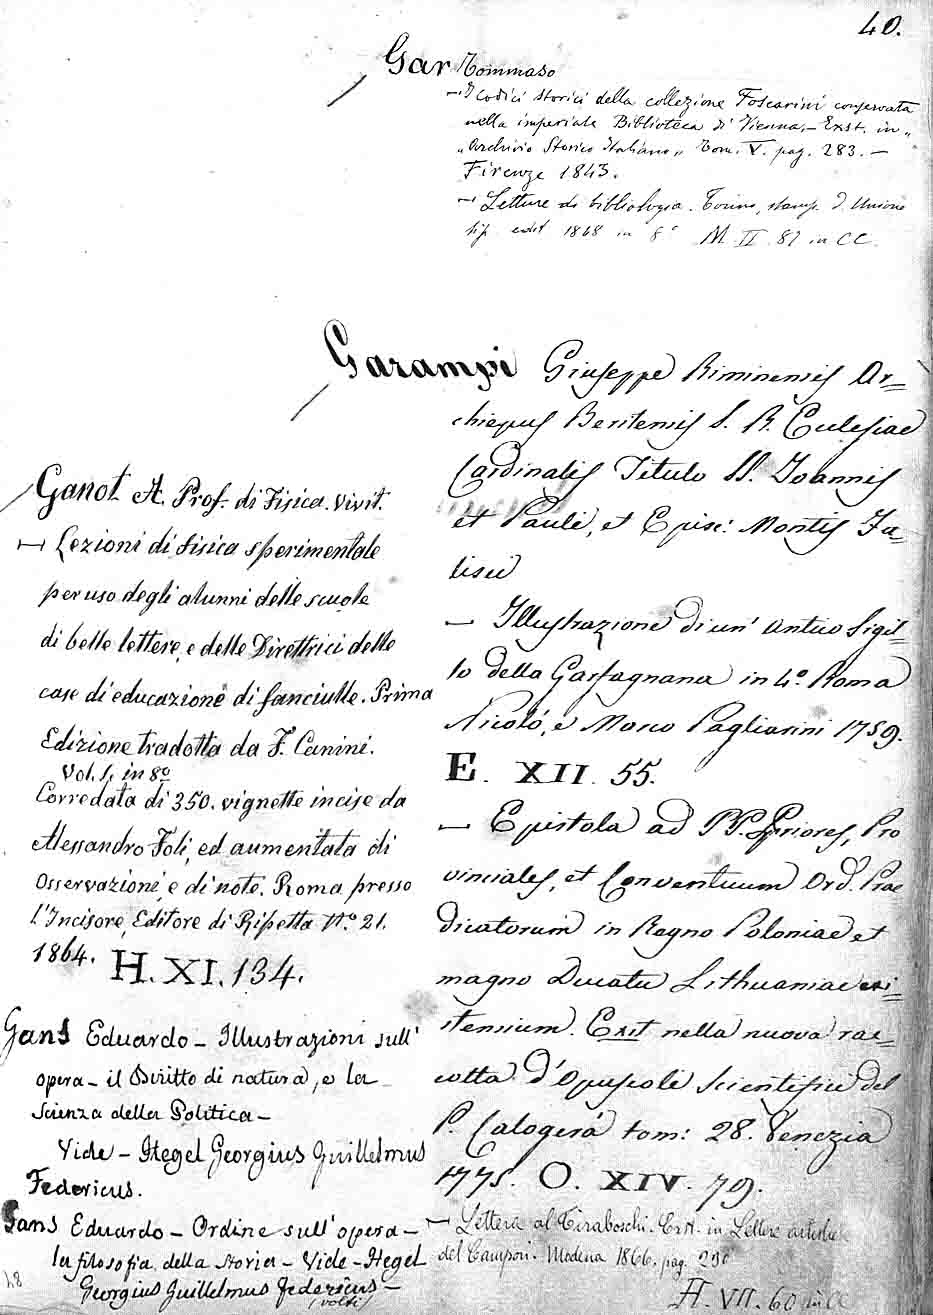 40.
Ganot A. Prof. di Fisica. vivit.
Lezioni di fisica sperimentale
per uso degli alunni delle scuole
di belle lettere, e delle Direttrici delle
case di educazione di fanciulle. Prima
Edizione tradotta da F. Canini.
Vol. 1. in 8º
Corredata di 350. vignette incise da
Alessandro Foli, ed aumentata di
Osservazioni, e di note. Roma presso
l'Incisore, Editore di Ripetta Nº. 21.
1864. H. XI. 134.
Gans Eduardo – Illustrazioni sull'
opera – il Diritto di natura, e la
scienza della Politica –
Vide – Hegel Georgius Guillelmus
Federicus.
Gans Eduardo – Ordine sull'opera –
la filosofia della storia – Vide – Hegel
Georgius Guillelmus Federicus –
(volti)
Gar Tommaso
– I codici storici della collezione Foscarini conservata
nella imperiale Biblioteca di Vienna. – Exst. in "
"Archivio Storico Italiano" Tom. V. pag. 283. –
Firenze 1843.
– Letture di bibliologia. Torino, stamp. d. Unione
tip. edit 1868 in 8º M. II. 87 in CC.
Garampi Giuseppe Riminensis Ar=
chiepus Beritensis S. R. Eclesiae
Cardinalis Titulo SS. Joannis
et Pauli, et Episc: Montis Fa=
lisci
– Illustrazione di un' antico Sigil=
lo della Garfagnana in 4º. Roma
Nicolò, e Marco Pagliarini 1759.
E. XII. 55.
– Epistola ad PP. Priores, Pro
vinciales, et Conventuum Ord. Prae
dicatorum in Regno Poloniae et
magno Ducatu Lithuaniae exi=
stensium. Exit nella nuova rac=
colta d'Opuscoli Scientifici del
P. Calogerà tom: 28. Venezia
1775. O. XIV. 79.
– Lettera al Tiraboschi. Exst. in Lettere
del Campori. Modena 1866. pag.
H. VII. 60 in